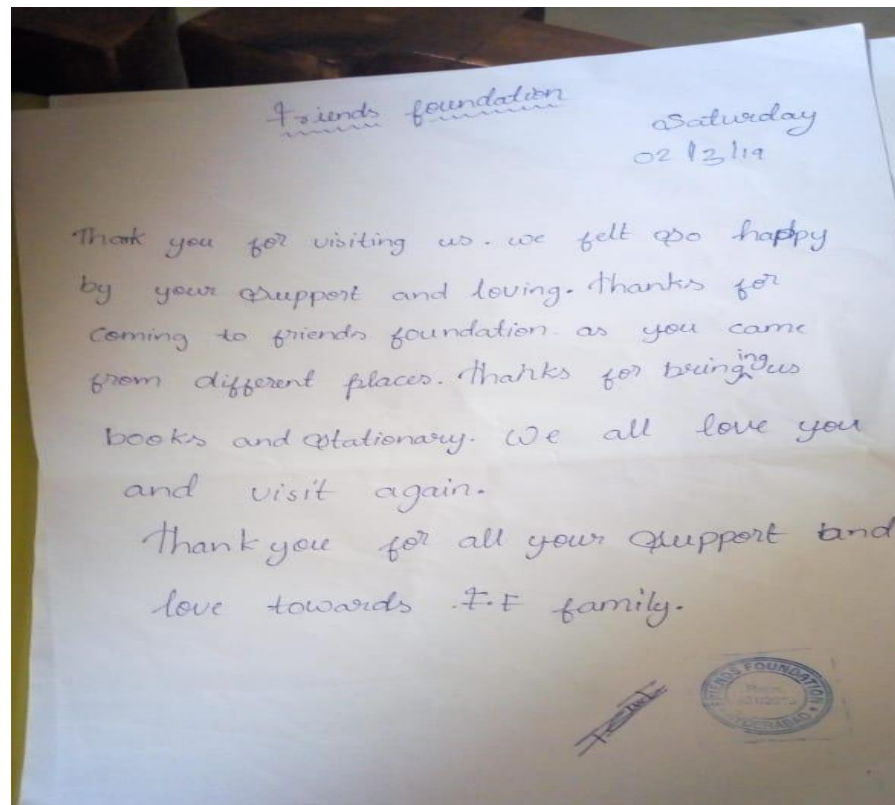 Friends foundation
Saturday
02/3/19
Thank you for visiting us. we felt so happy
by your support and loving. thanks for
coming to friends foundation. as you came
from different places. thanks for bringing us
books and stationary. We all love you
and visit again.
thank you for all your support and
love towards .F.F family.
FRIENDS FOUNDATION
HYDERABAD